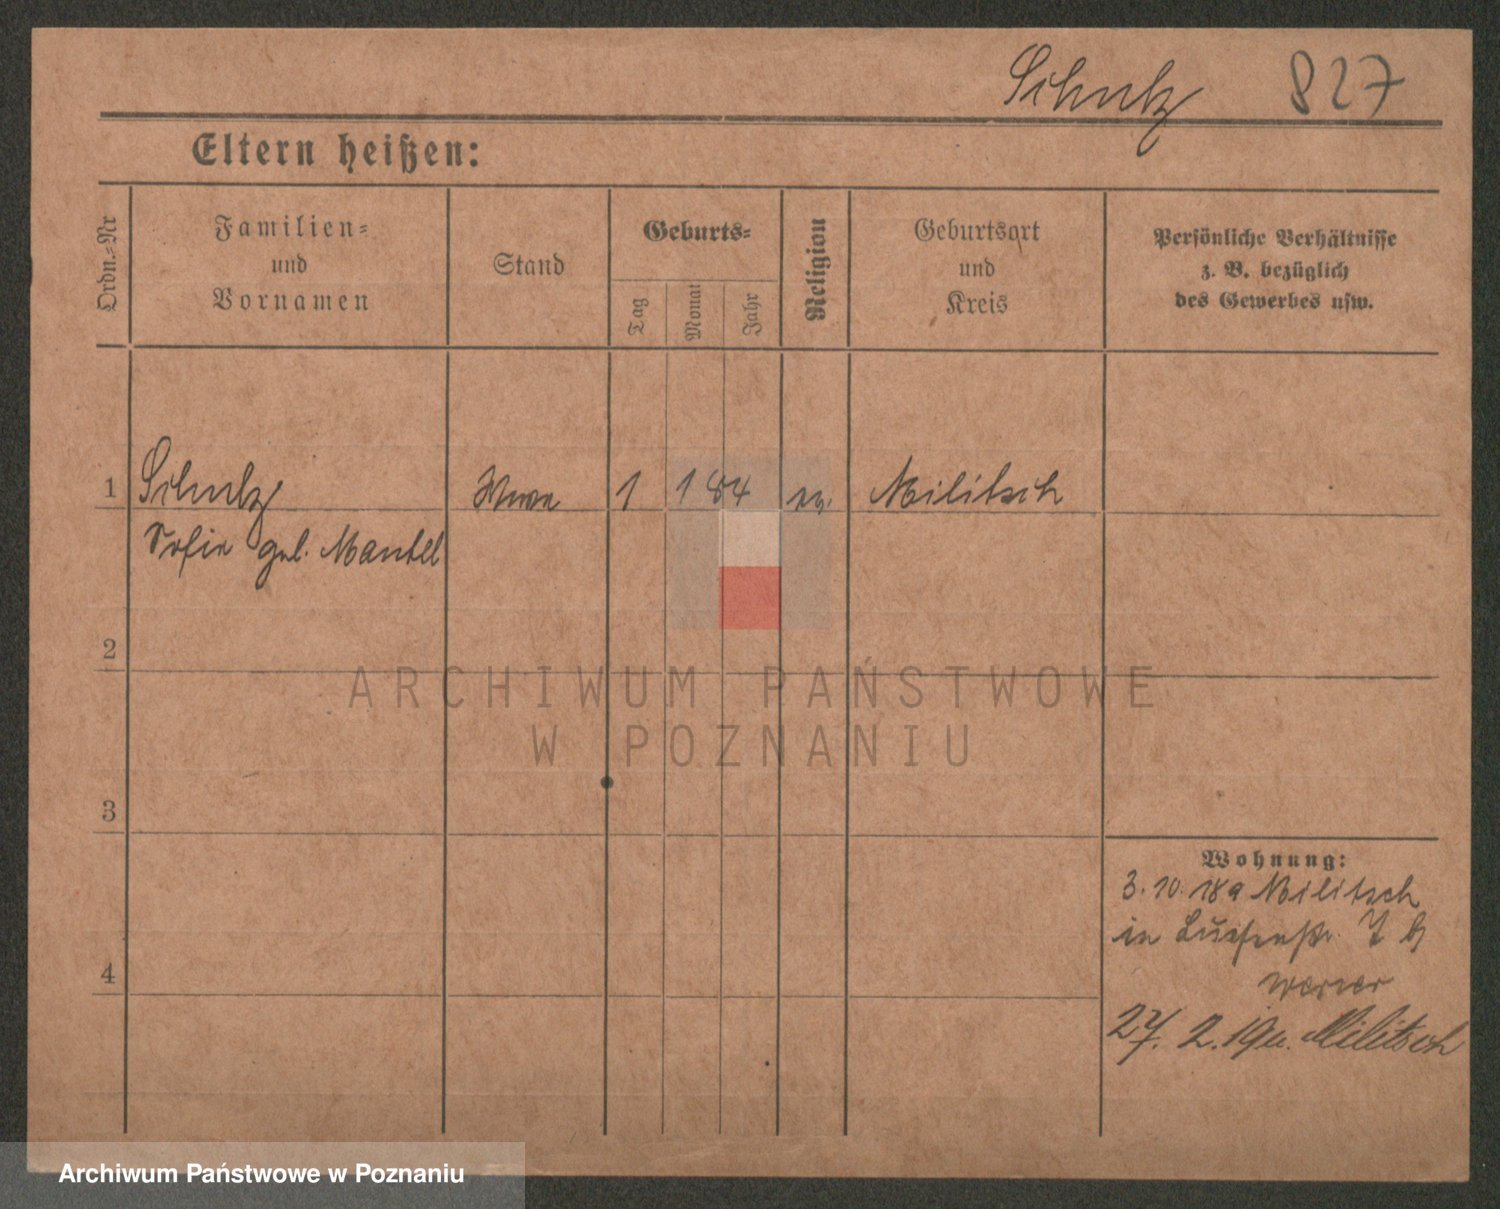 Schulz 827
Eltern heißen:
Ordn.=Nr
Familien=
und
Vornamen
Stand
Geburts=
Tag
Monat
Jahr
Religion
Geburtsort
und
Kreis
Persönliche Verhältnisse
z. B. bezüglich
des Gewerbes usw.
1 Schulz Wwe 1 1 84 ev. Militsch
Sofie geb. Mantel
2
ARCHIWUM PAŃSTWOWE
W POZNANIU
3
Wohnung:
3. 10. 18 a Militsch
in Luisenstr. 7 b
Werner
4
27. 2. 19 u. Militsch
Archiwum Państwowe w Poznaniu